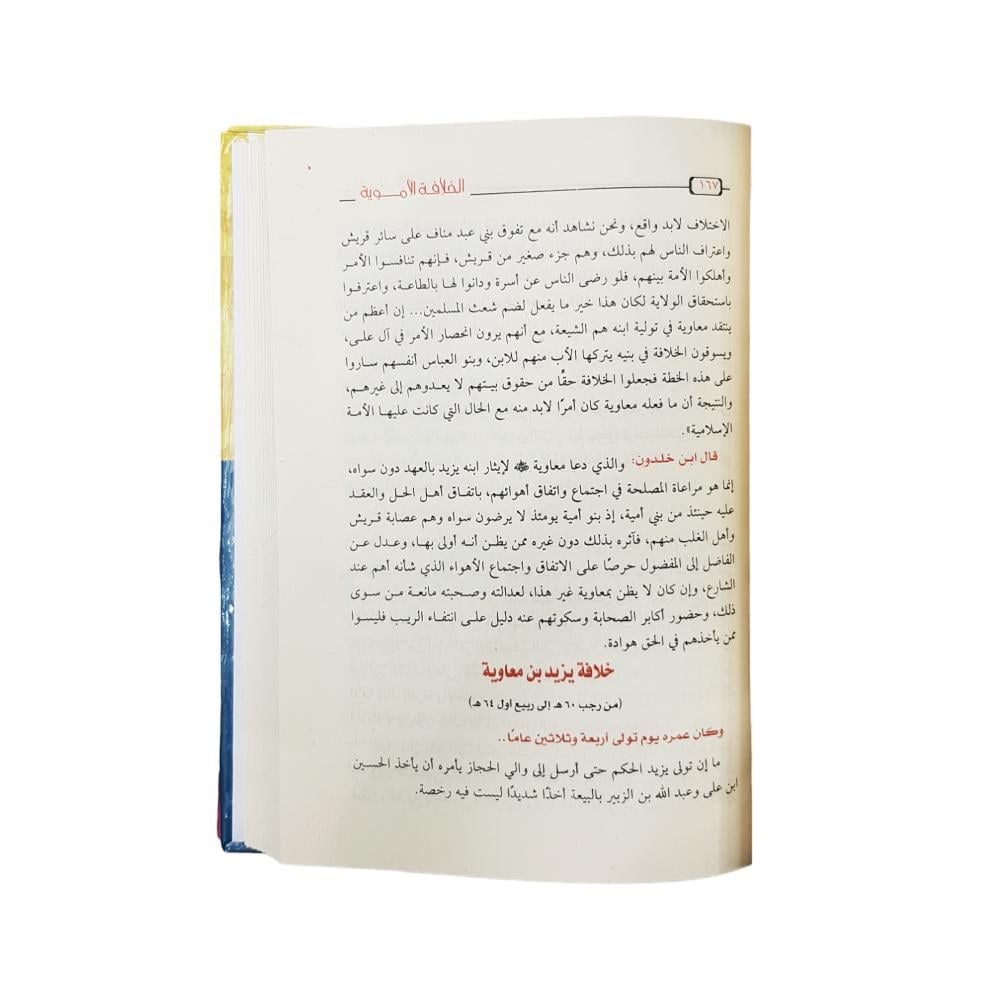 ١٦٧
الخلافة الأموية
الاختلاف لابد واقع، ونحن نشاهد أنه مع تفوق بني عبد مناف على سائر قريش
واعتراف الناس لهم بذلك، وهم جزء صغير من قريش، فإنهم تنافسوا الأمر
وأهلكوا الأمة بينهم، فلو رضى الناس عن أسرة ودانوا لها بالطاعة، واعترفوا
باستحقاق الولاية لكان هذا خير ما يفعل لضم شعث المسلمين... إن أعظم من
ينتقد معاوية في تولية ابنه هم الشيعة، مع أنهم يرون انحصار الأمر في آل على،
ويسوقون الخلافة في بنيه يتركها الأب منهم للابن، وبنو العباس أنفسهم ساروا
على هذه الخطة فجعلوا الخلافة حقًا من حقوق بيتهم لا يعدوهم إلى غيرهم،
والنتيجة أن ما فعله معاوية كان أمرًا لابد منه مع الحال التي كانت عليها الأمة
الإسلامية».
قال ابن خلدون: والذي دعا معاوية ﷺ لإيثار ابنه يزيد بالعهد دون سواه،
إنما هو مراعاة المصلحة في اجتماع واتفاق أهوائهم، باتفاق أهل الحل والعقد
عليه حينئذ من بني أمية، إذ بنو أمية يومئذ لا يرضون سواه وهم عصابة قريش
وأهل الغلب منهم، فآثره بذلك دون غيره ممن يظن أنه أولى بها، وعدل عن
الفاضل إلى المفضول حرصًا على الاتفاق واجتماع الأهواء الذي شأنه أهم عند
الشارع، وإن كان لا يظن بمعاوية غير هذا، لعدالته وصحبته مانعة من سوى
ذلك، وحضور أكابر الصحابة وسكوتهم عنه دليل على انتفاء الريب فليسوا
ممن يأخذهم في الحق هوادة.
خلافة يزيد بن معاوية
(من رجب ٦٠ هـ إلى ربيع اول ٦٤ هـ)
وكان عمره يوم تولى أربعة وثلاثين عامًا..
ما إن تولى يزيد الحكم حتى أرسل إلى والي الحجاز يأمره أن يأخذ الحسين
ابن على وعبد الله بن الزبير بالبيعة أخذًا شديدًا ليست فيه رخصة.